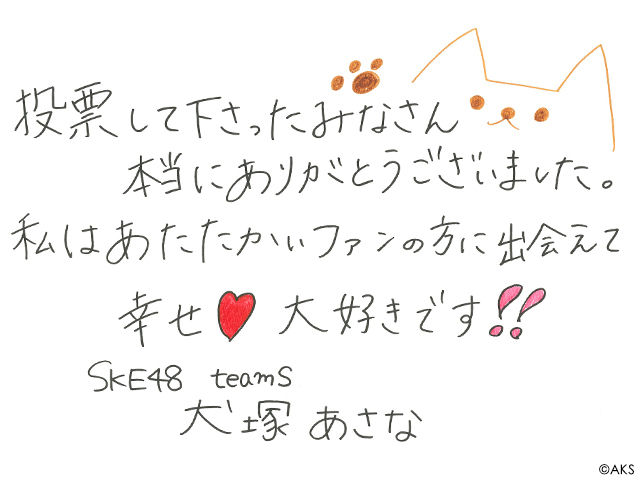 投票して下さったみなさん
本当にありがとうございました。
私はあたたかいファンの方に出会えて
幸せ♥ 大好きです!!
SKE48 teamS
犬塚 あさな
©AKS